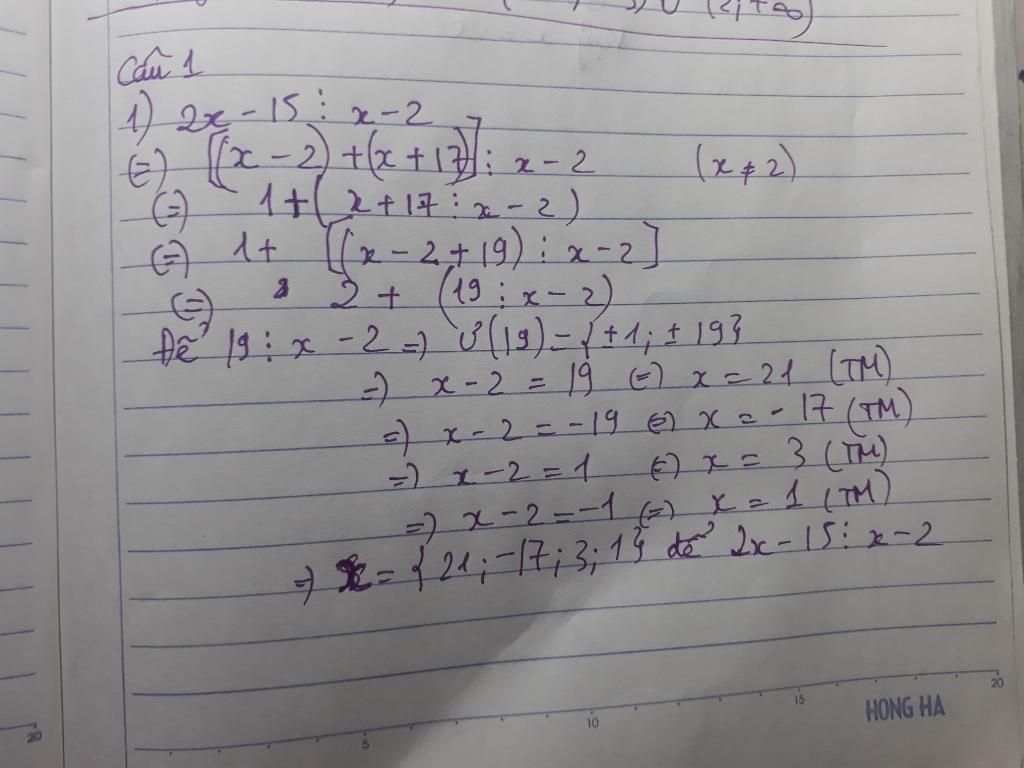 ; 3) ∪ (2; +∞)
Câu 1
1) 2x - 15 ⋮ x - 2
(=) [(x - 2) + (x + 17)] ⋮ x - 2 (x ≠ 2)
(=) 1 + ( x + 17 ⋮ x - 2 )
(=) 1 + [(x - 2 + 19) ⋮ x - 2]
(=) 2 + (19 ⋮ x - 2)
Để 19 ⋮ x - 2 =) Ư(19) = {±1; ±19}
=) x - 2 = 19 (=) x = 21 (TM)
=) x - 2 = -19 (=) x = -17 (TM)
=) x - 2 = 1 (=) x = 3 (TM)
=) x - 2 = -1 (=) x = 1 (TM)
=) x = {21; -17; 3; 1} để 2x - 15 ⋮ x - 2
5 10 15 20
HONG HA
20